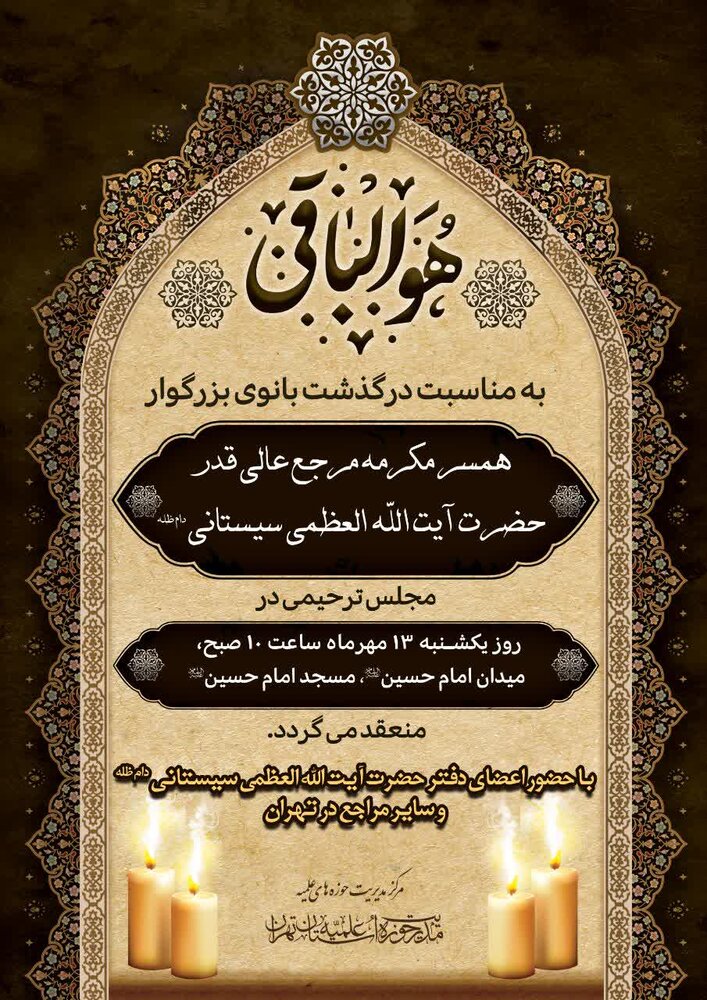 هُوَ الْبٰاقی
به مناسبت درگذشت بانوی بزرگوار
همسر مکرمه مرجع عالی قدر
حضرت آیت الله العظمی سیستانی دام ظله
مجلس ترحیمی در
روز یکشنبه ۱۳ مهرماه ساعت ۱۰ صبح،
میدان امام حسین، مسجد امام حسین
منعقد می گردد.
با حضور اعضای دفتر حضرت آیت الله العظمی سیستانی دام ظله
و سایر مراجع در تهران
مرکز مدیریت حوزه های علمیه
مدیریت حوزه علمیه استان تهران